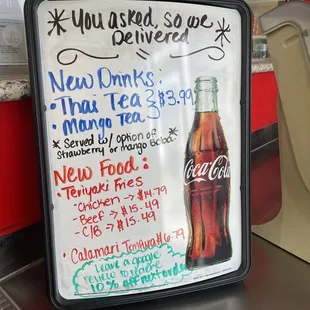 *You asked, so we*
Delivered
New Drinks:
• Thai Tea } $3.99
• Mango Tea
*Served w/ option of*
Strawberry or mango Boba
New Food:
• Teriyaki Fries
- Chicken → $14.79
- Beef → $15.49
- C/B → $15.49
• Calamari Tempura $6.79
Leave a google
review to receive
10% off next order
Coca-Cola